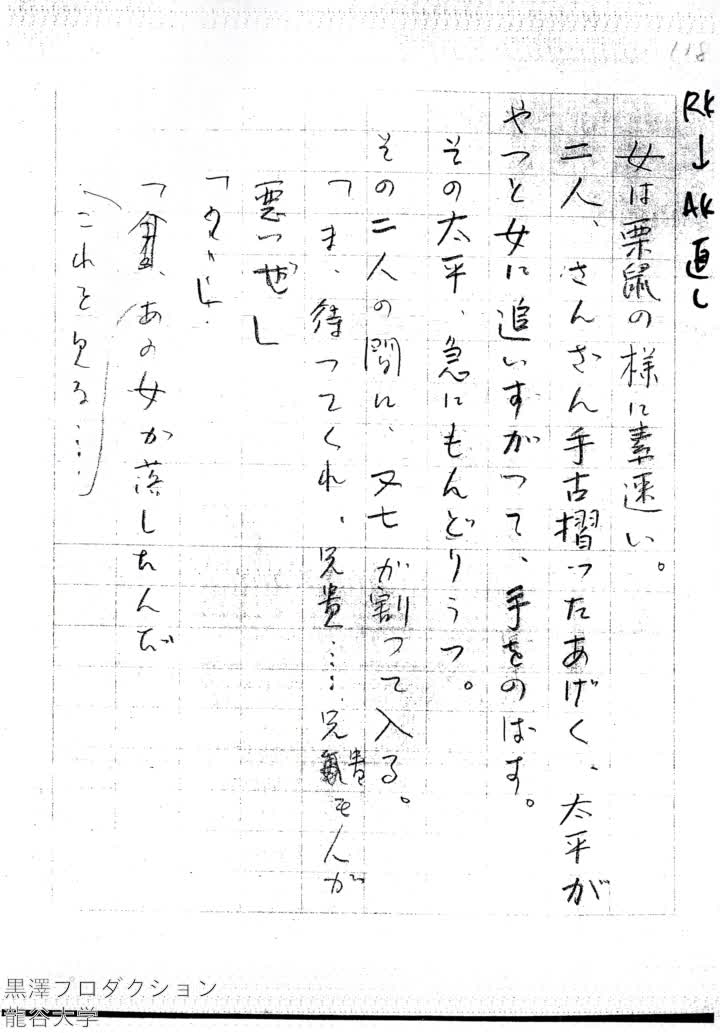 118
RK→AK直し
女は栗鼠の様に素速い。
二人、さんざん手古摺ったあげく、太平が
やっと女に追いすがって、手をのばす。
その太平、急にもんどりうつ。
その二人の間に、又七が割って入る。
「ま、待ってくれ、兄貴……兄貴も人が
悪いぜ」
「
「
あの女が落したんだ
これを見ろ……
黒澤プロダクション
龍谷大学